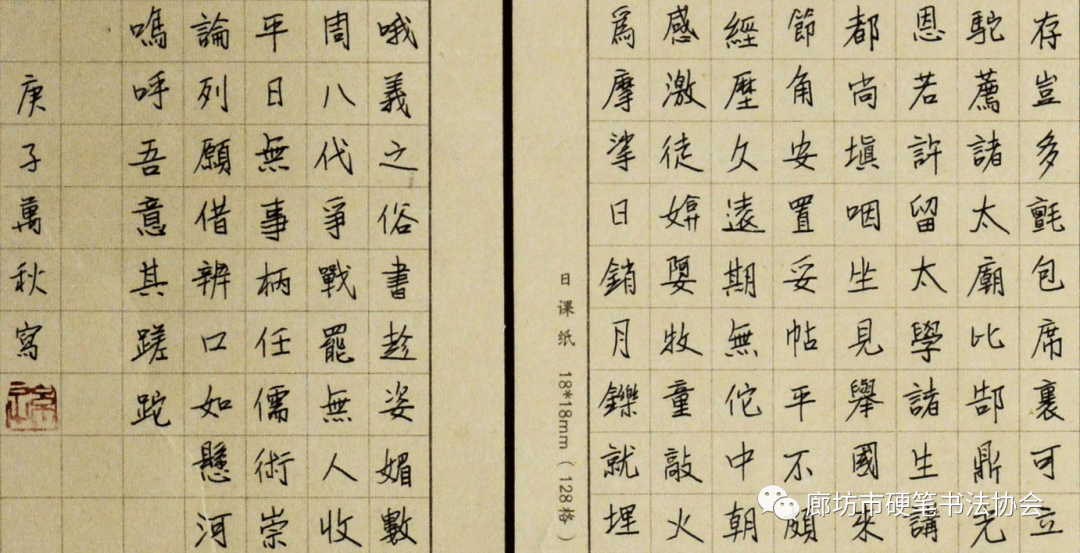 存豈多氈包席裏可立
駝薦諸太廟比郜鼎光
恩若許留太學諸生講
都尚填咽坐見舉國來
節角安置妥帖平不頗
經歷久遠期無佗中朝
感激徒媕娿牧童敲火
爲摩挲日銷月鑠就埋
日课纸 18*18mm（128格）
哦義之俗書趁姿媚數
周八代爭戰罷無人收
平日無事柄任儒術崇
論列願借辨口如懸河
嗚呼吾意其蹉跎
庚子萬秋寫
廊坊市硬笔书法协会